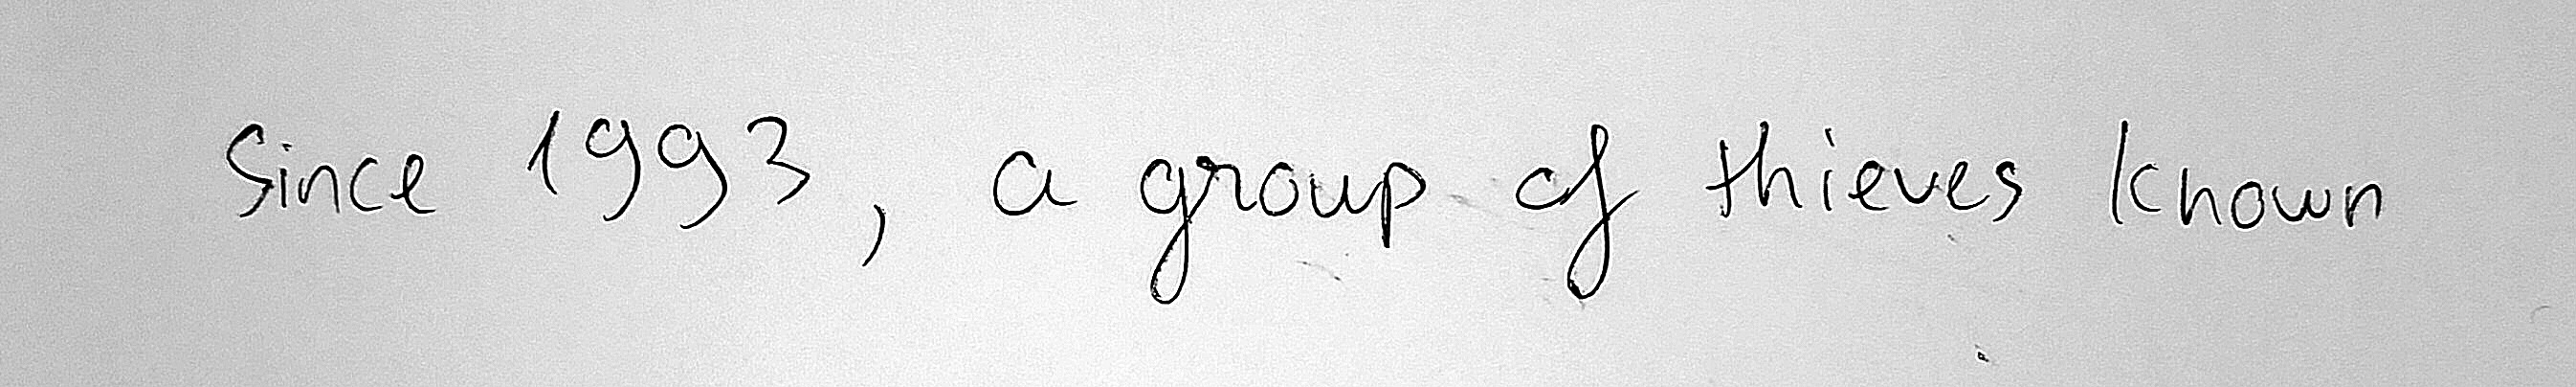 Since 1993, a group of thieves known